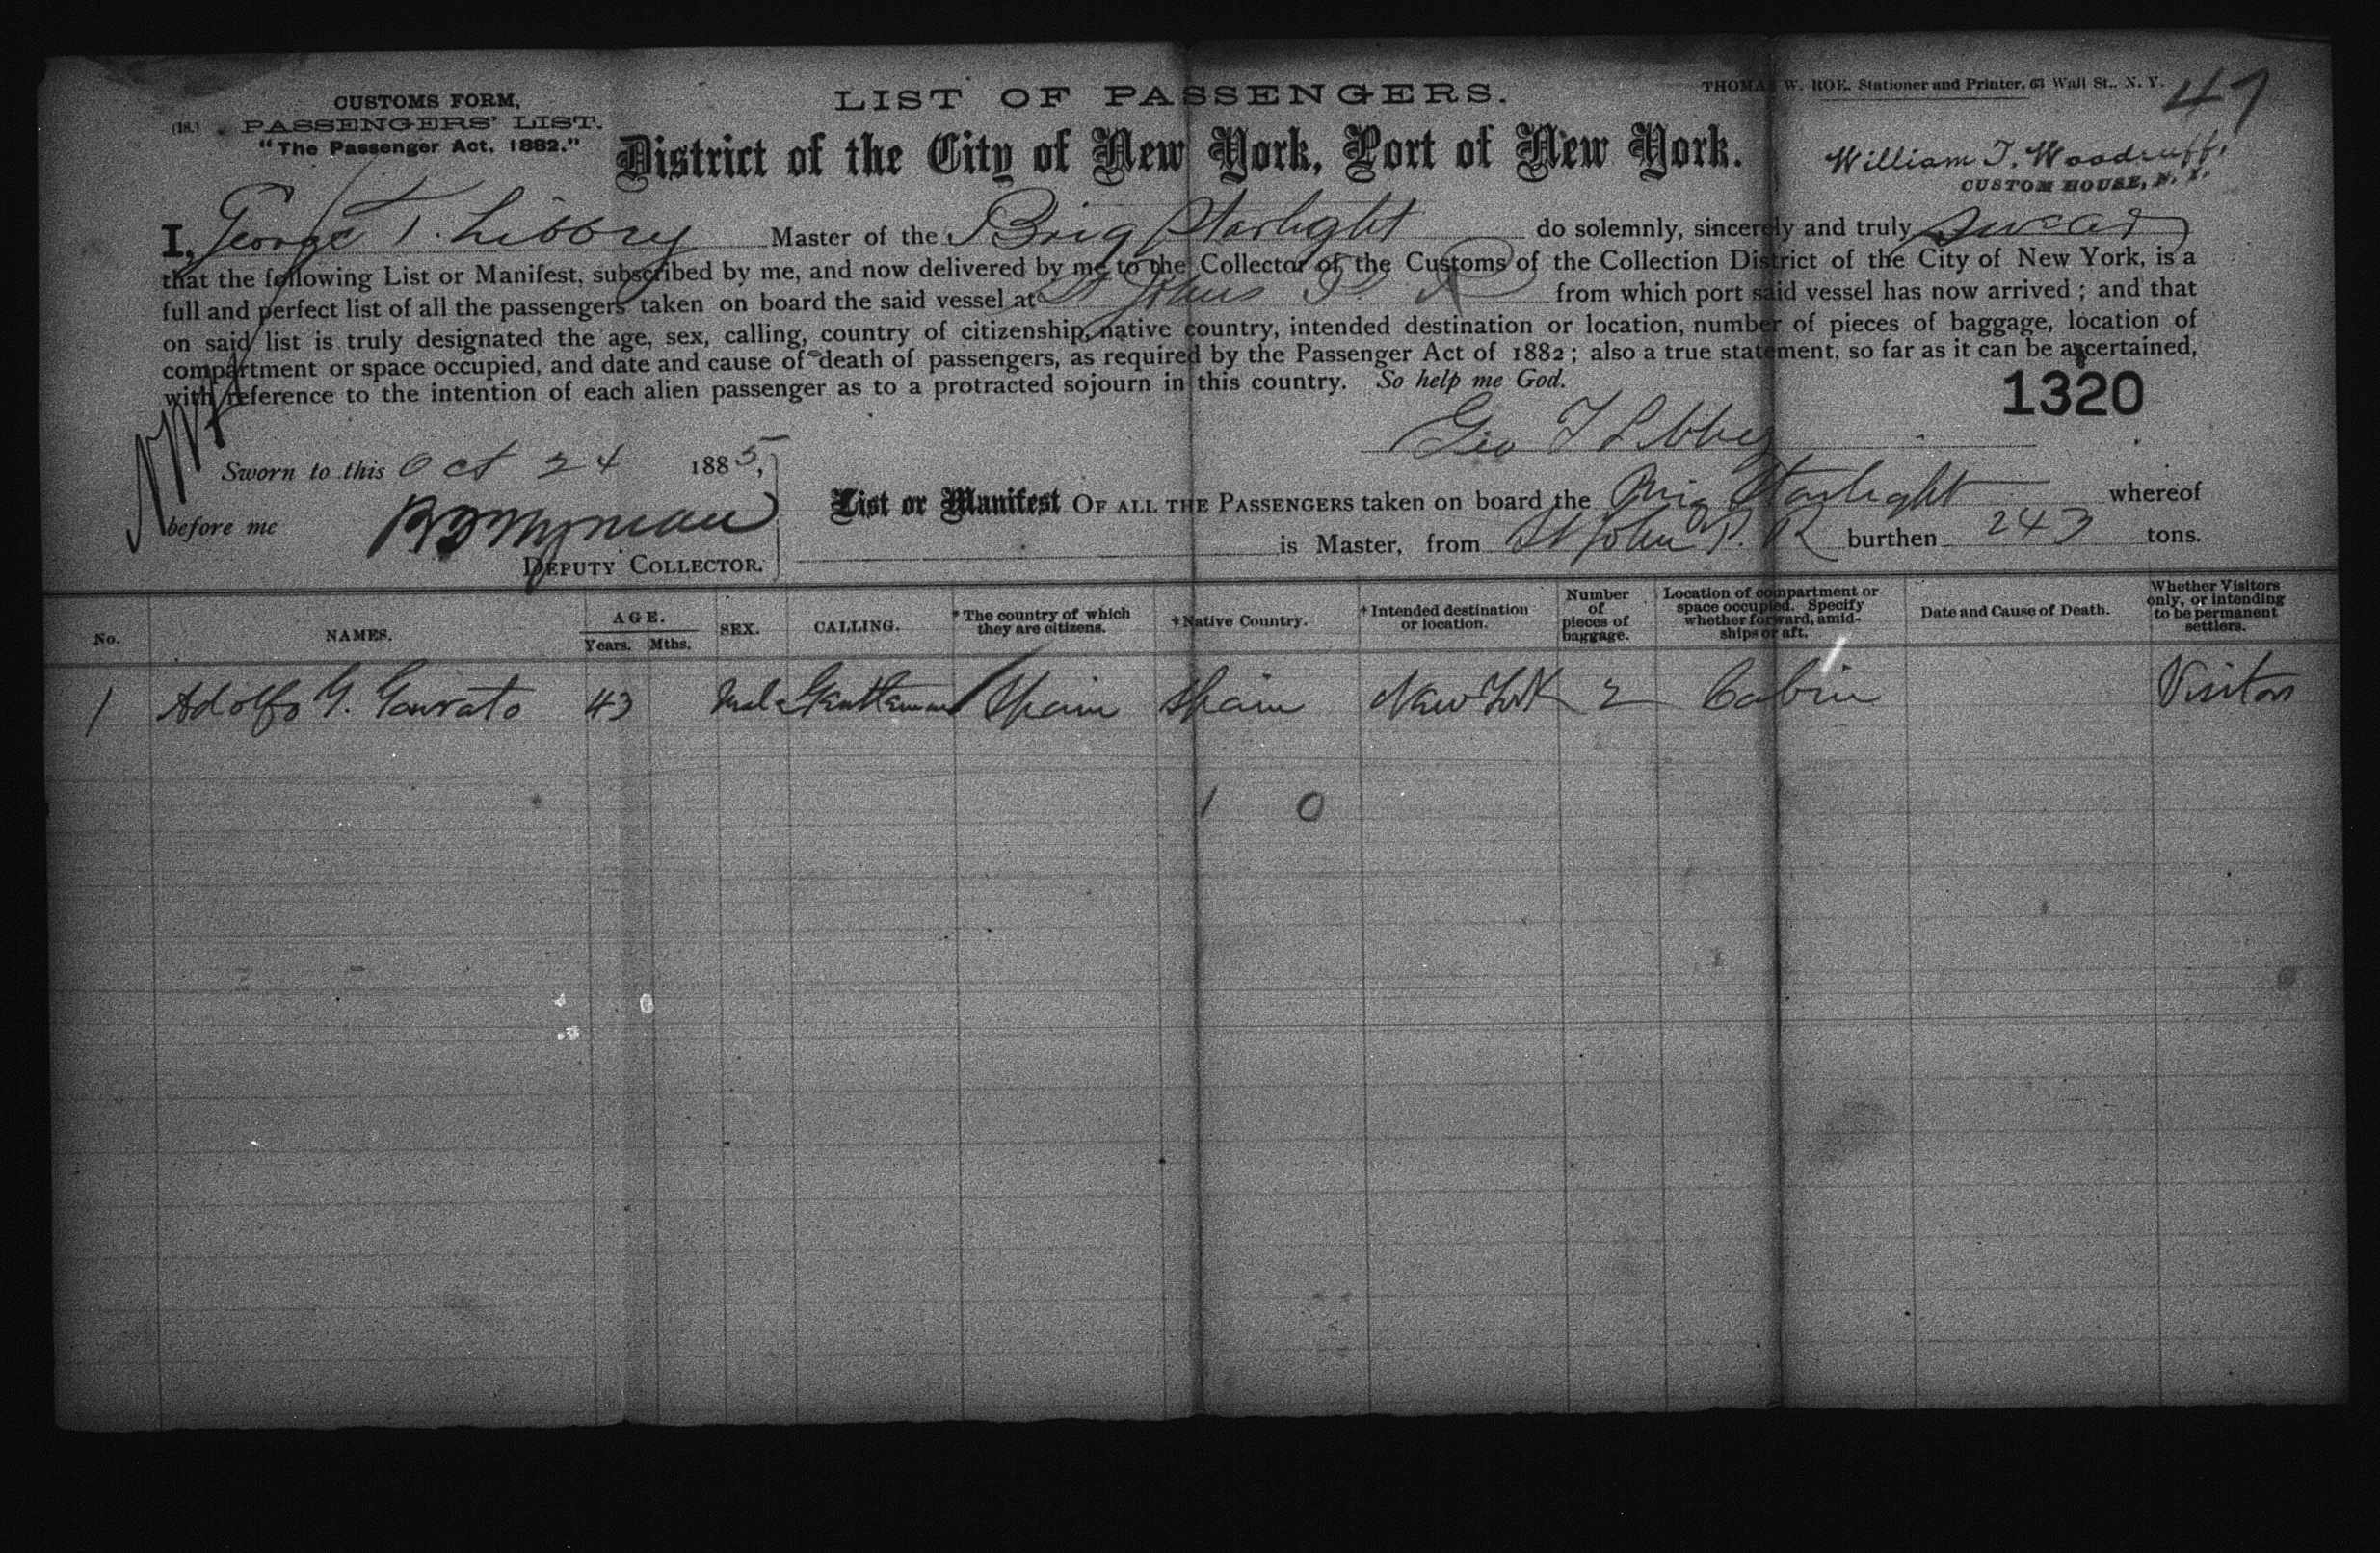 CUSTOMS FORM,
(18.) PASSENGERS' LIST.
"The Passenger Act, 1882."
LIST OF PASSENGERS.
THOMAS W. ROE, Stationer and Printer, 63 Wall St., N. Y.
47
District of the City of New York, Port of New York.
William T. Woodruff,
CUSTOM HOUSE, N. Y.
I, George T. Libbey Master of the Brig Starlight do solemnly, sincerely and truly swear
that the following List or Manifest, subscribed by me, and now delivered by me to the Collector of the Customs of the Collection District of the City of New York, is a
full and perfect list of all the passengers taken on board the said vessel at St Johns P. R from which port said vessel has now arrived; and that
on said list is truly designated the age, sex, calling, country of citizenship, native country, intended destination or location, number of pieces of baggage, location of
compartment or space occupied, and date and cause of death of passengers, as required by the Passenger Act of 1882; also a true statement, so far as it can be ascertained,
with reference to the intention of each alien passenger as to a protracted sojourn in this country. So help me God.
1320
Geo T Libbey
Sworn to this Oct 24 1885,
before me
DEPUTY COLLECTOR.
List or Manifest OF ALL THE PASSENGERS taken on board the Brig Starlight whereof
is Master, from St John P. R burthen 243 tons.
No. NAMES. AGE. Years. Mths. SEX. CALLING. * The country of which they are citizens. * Native Country. * Intended destination or location. Number of pieces of baggage. Location of compartment or space occupied. Specify whether forward, amidships or aft. Date and Cause of Death. Whether Visitors only, or intending to be permanent settlers.
1 Adolfo G. 43 Male Gentleman Spain Spain New York 2 Cabin Visitor
1 0